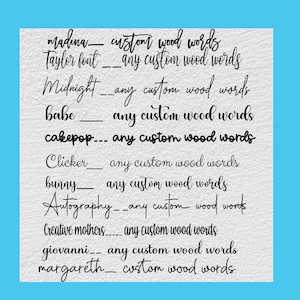 madina___ custom wood words
Taylor font ___any custom wood words
Midnight __any custom wood words
babe ____ any custom wood words
cakepop--- any custom wood words
Clicker___ any custom wood words
bunny____ any custom wood words
Autography__any custom wood words
Creative mothers....any custom wood words
giovanni__ any custom wood words
margareth_ custom wood words